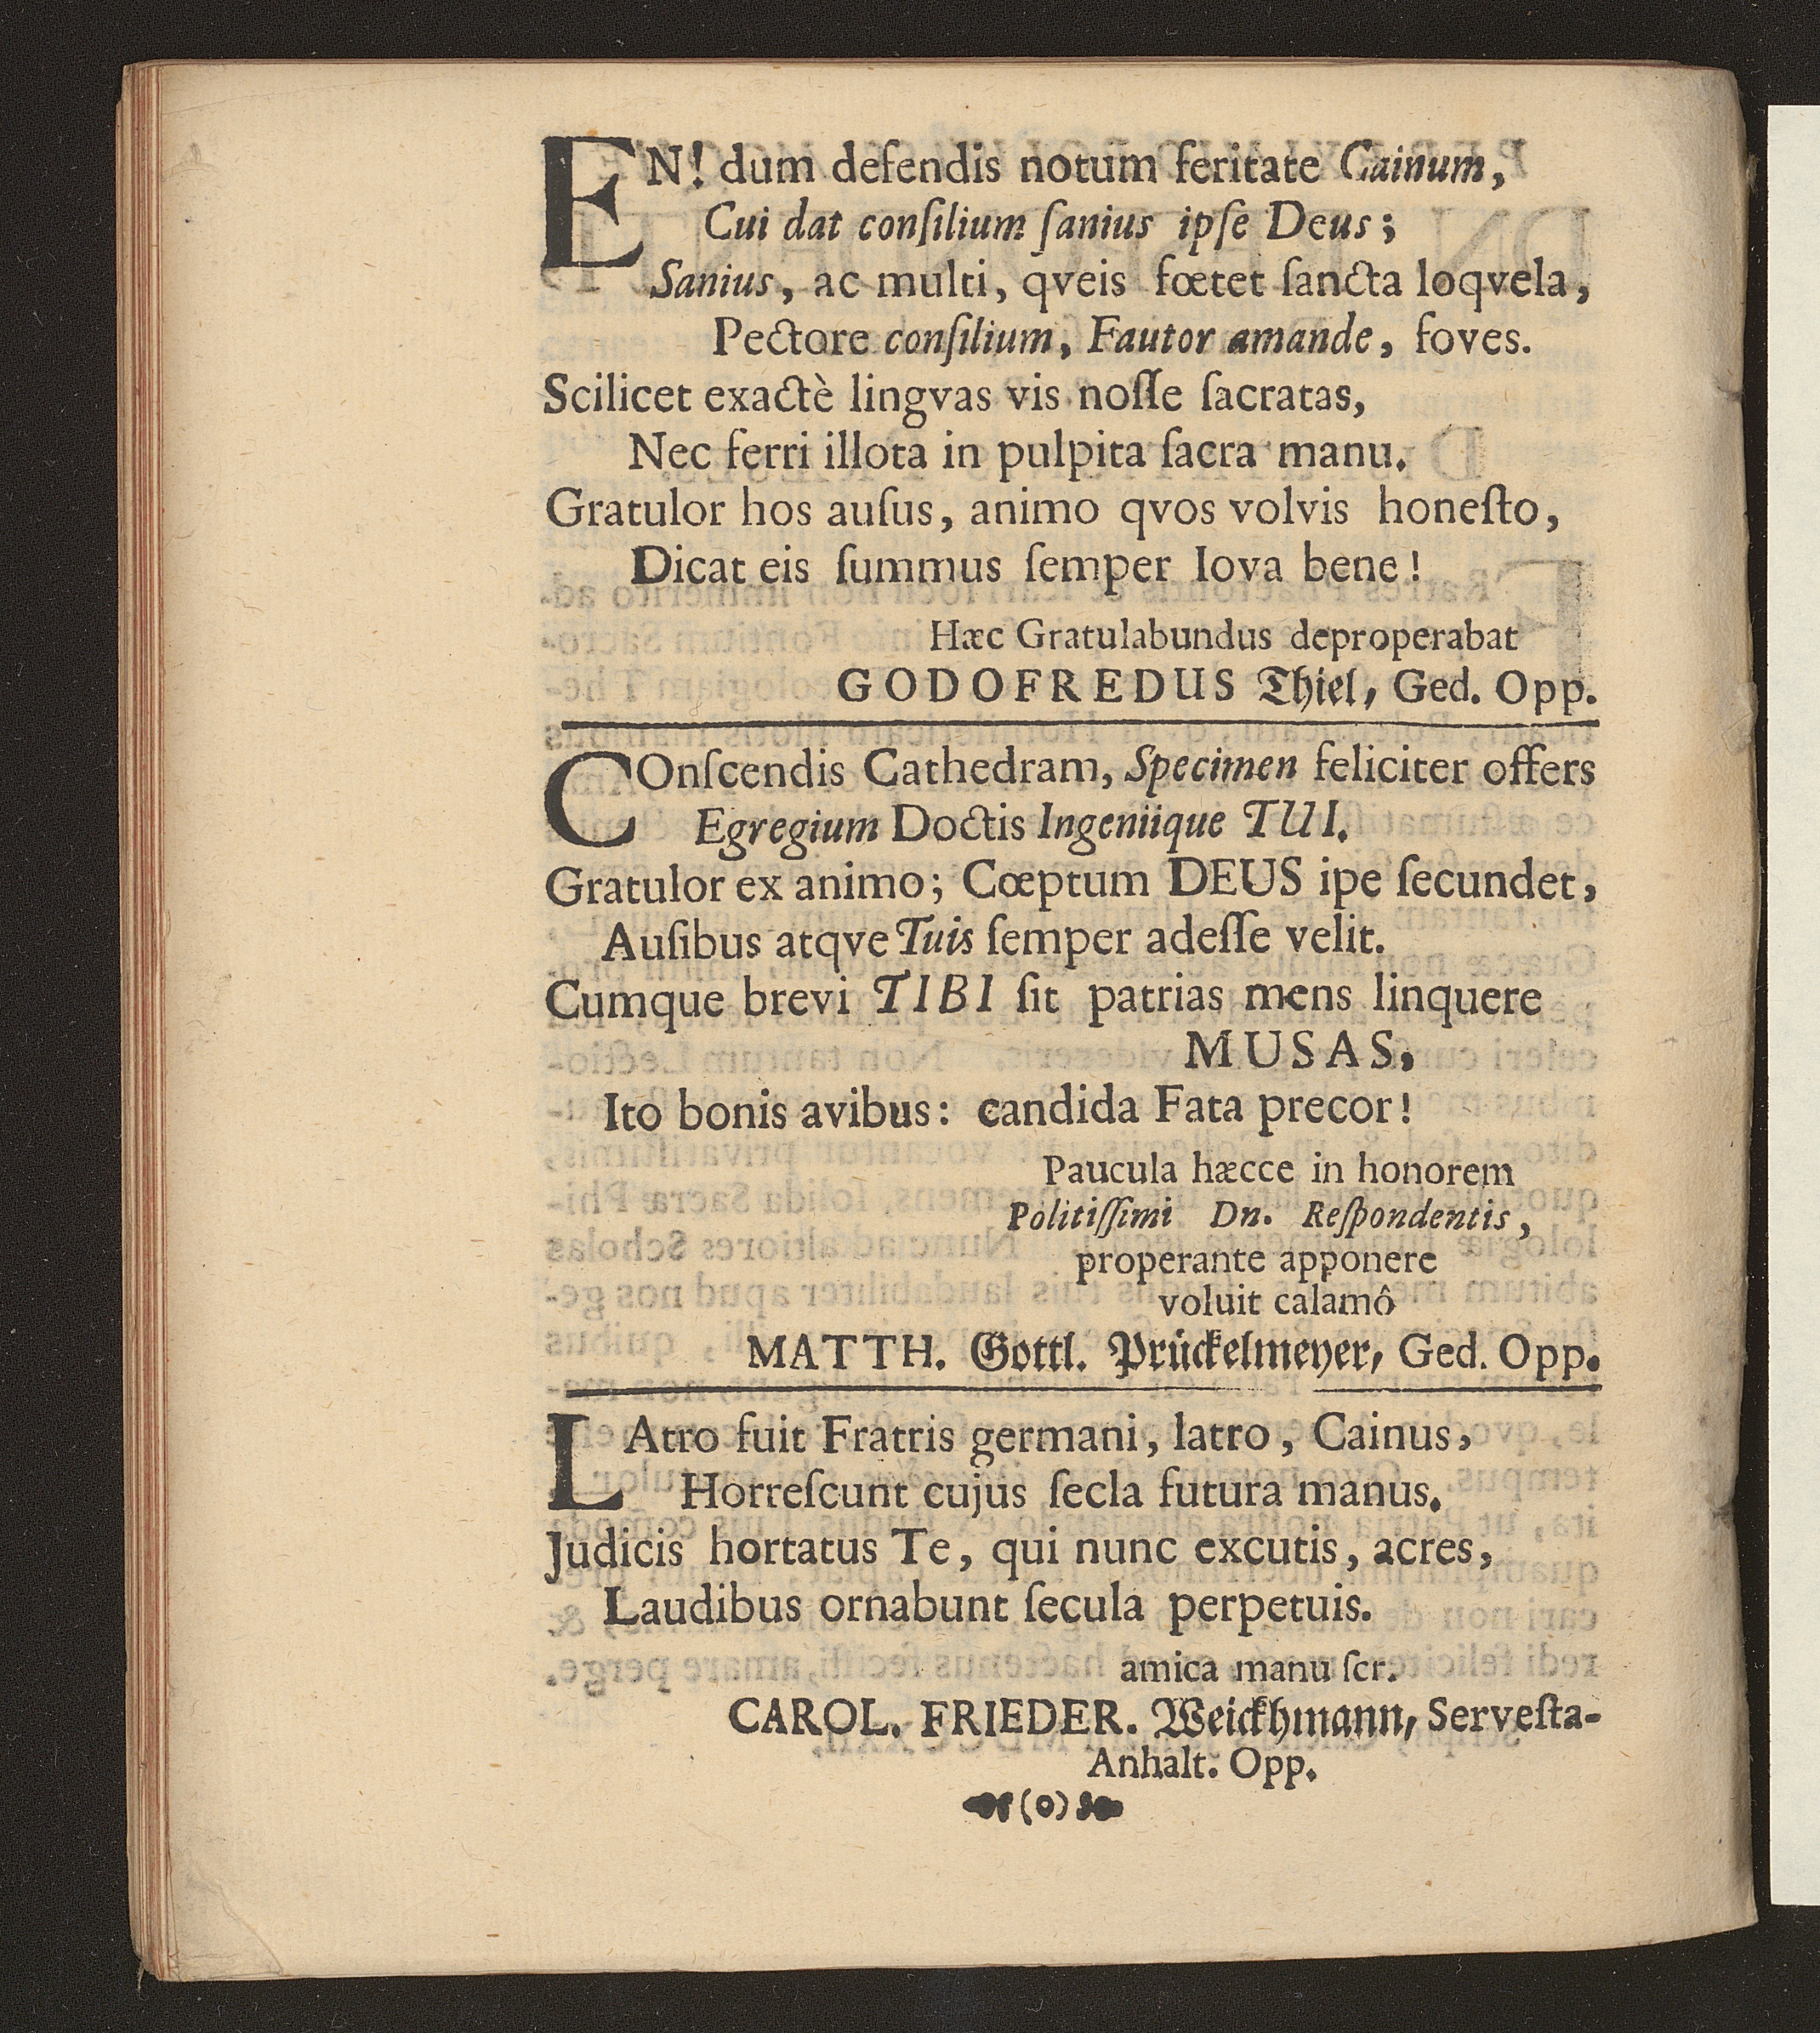 EN! dum defendis notum feritate Cainum,
Cui dat conſilium ſanius ipſe Deus;
Sanius, ac multi, qveis fœtet ſancta loqvela,
Pectore conſilium, Fautor amande, foves.
Scilicet exactè lingvas vis noſſe ſacratas,
Nec ferri illota in pulpita ſacra manu.
Gratulor hos auſus, animo qvos volvis honeſto,
Dicat eis ſummus ſemper Iova bene!
Hæc Gratulabundus deproperabat
GODOFREDUS Thiel, Ged. Opp.
COnſcendis Cathedram, Specimen feliciter offers
Egregium Doctis Ingeniique TUI.
Gratulor ex animo; Cœptum DEUS ipe ſecundet,
Auſibus atqve Tuis ſemper adeſſe velit.
Cumque brevi TIBI ſit patrias mens linquere
MUSAS,
Ito bonis avibus: candida Fata precor!
Paucula hæcce in honorem
Politiſſimi Dn. Reſpondentis,
properante apponere
voluit calamô
MATTH. Gottl. Prückelmeyer, Ged. Opp.
LAtro fuit Fratris germani, latro, Cainus,
Horreſcunt cujus ſecla futura manus.
Judicis hortatus Te, qui nunc excutis, acres,
Laudibus ornabunt ſecula perpetuis.
amica manu ſcr.
CAROL. FRIEDER. Weickhmann, Serveſta-
Anhalt. Opp.
(o)